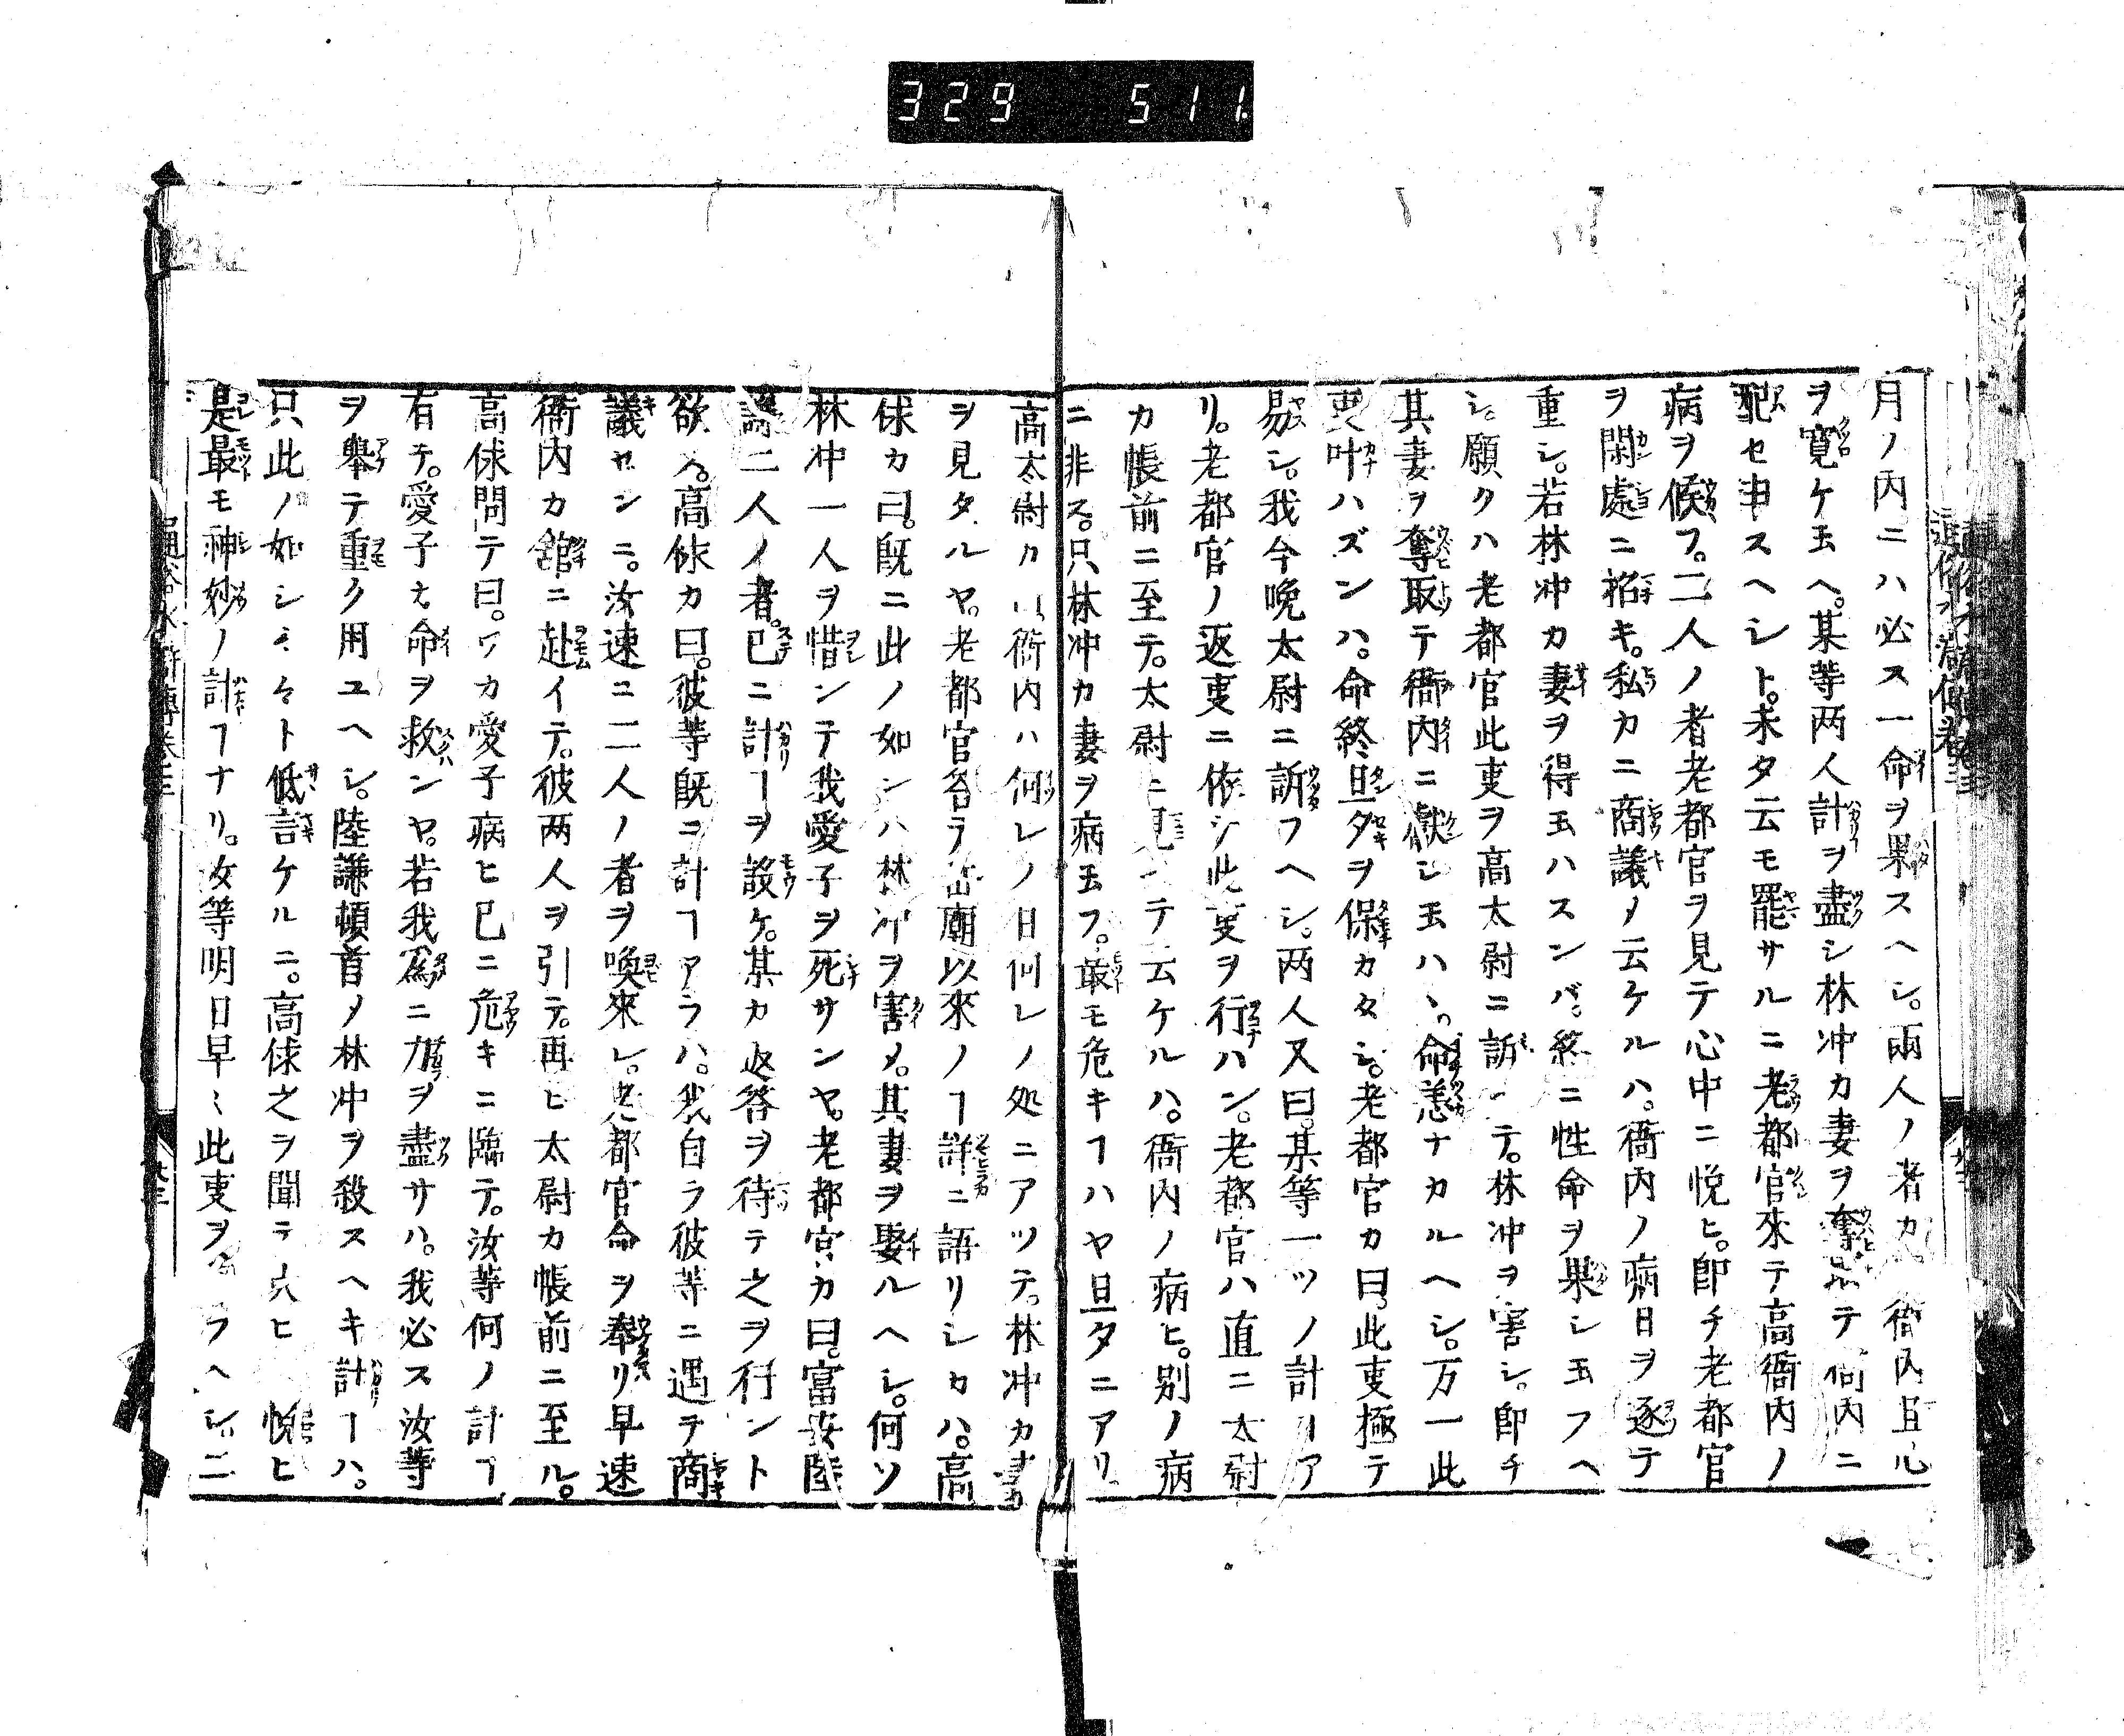 329 511
月ノ内ニハ必ス一命ヲ果スヘシ。兩人ノ者カ。衙内且心
ヲ寛ケ玉ヘ。某等两人計ヲ盡シ林冲カ妻ヲ奪取テ衙内ニ
配セ申スヘシト。未タ云モ罷サルニ老都官來テ高衙内ノ
病ヲ候フ。二人ノ者老都官ヲ見テ心中ニ悦ヒ。即チ老都官
ヲ閑處ニ招キ。私カニ商議メ云ケルハ。衙内ノ病日ヲ逐テ
重シ。若林冲カ妻ヲ得玉ハスンバ。終ニ性命ヲ果シ玉フヘ
シ。願クハ老都官此叓ヲ高太尉ニ訴ヘテ。林冲ヲ害シ。即チ
其妻ヲ奪取テ衙内ニ獻シ玉ハヽ。命恙ナカルヘシ。万一此
叓叶ハズンハ。命終旦タヲ保カタシ。老都官カ曰。此叓極テ
易シ。我今晩太尉ニ訴フヘシ。两人又曰。某等一ツノ計ヿア
リ。老都官ノ返叓ニ依シ此叓ヲ行ハン。老都官ハ直ニ太尉
カ帳前ニ至テ。太尉ニ見ヘテ云ケルハ。衙内ノ病ヒ。別ノ病
ニ非ス。只林冲カ妻ヲ病玉フ。最モ危キヿハヤ旦タニアリ
高太尉カ曰衙内ハ何レノ日何レノ処ニアツテ。林冲カ妻
ヲ見タルヤ。老都官答テ岳廟以來ノヿ詳ニ語リシカハ。高
俅カ曰。既ニ此ノ如ンハ林冲ヲ害メ。其妻ヲ娶ルヘシ。何ソ
林冲一人ヲ惜ンテ我愛子ヲ死サンヤ。老都官カ曰。富安陸
謙二人ノ者。已ニ計ヿヲ設ケ。某カ返答ヲ待テ之ヲ行ント
欲ヘ。高俅カ曰。彼等既ニ計ヿアラハ。我自ラ彼等ニ遇テ商
議センニ。汝速ニ二人ノ者ヲ喚來レ。老都官命ヲ奉リ早速
衙内カ舘ニ赴イテ。彼两人ヲ引テ。再ヒ太尉カ帳前ニ至ル。
高俅問テ曰。ワカ愛子病ヒ已ニ危キニ臨テ。汝等何ノ計ヿ
有テ。愛子カ命ヲ救ンヤ。若我為ニ力ヲ盡サハ。我必ス汝等
ヲ舉テ重ク用ユヘシ。陸謙頓首メ林冲ヲ殺スヘキ計ヿハ。
只此ノ如シミ々ト低言ケルニ。高俅之ヲ聞テ大ヒニ悦ヒ
是最モ神妙ノ計ヿナリ。汝等明日早ミ此叓ヲ ラヘシ。二
通俗水滸傳卷之三